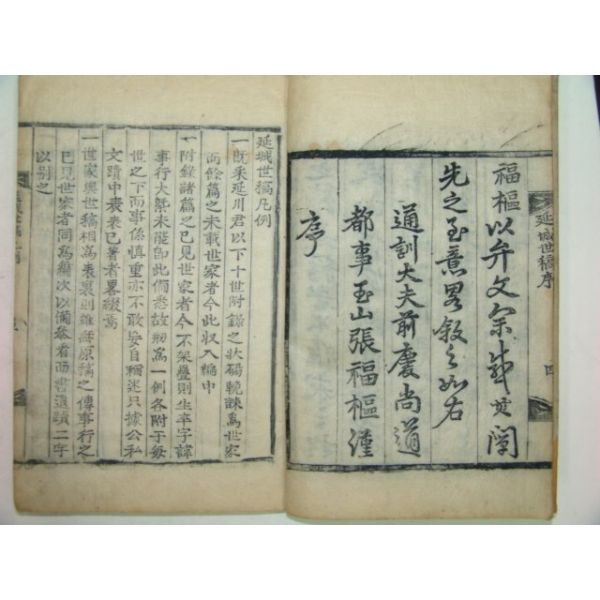 延城世稿序 四
福樞以弁文余感其闡
先之至意畧敘之如右
通訓大夫前慶尚道
都事玉山張福樞謹
序
延城世稿凡例
一既采延川君以下十世附錄之狀碣輓誄爲世家
而餘篇之未載世家者今此収入稿中
一附錄諸篇之已見世家者今不架疊則生卒字諱
事行大槩未能即此備悉故刱爲一例各附于每
世之下而事係慎重亦不敢妄自稱述只據公私
文蹟中表表已著者畧綴焉
一世家與世稿相爲表裏則雖無原稿之傳事行之
已見世家者同爲編次以備參看而書遺蹟二字
以別之